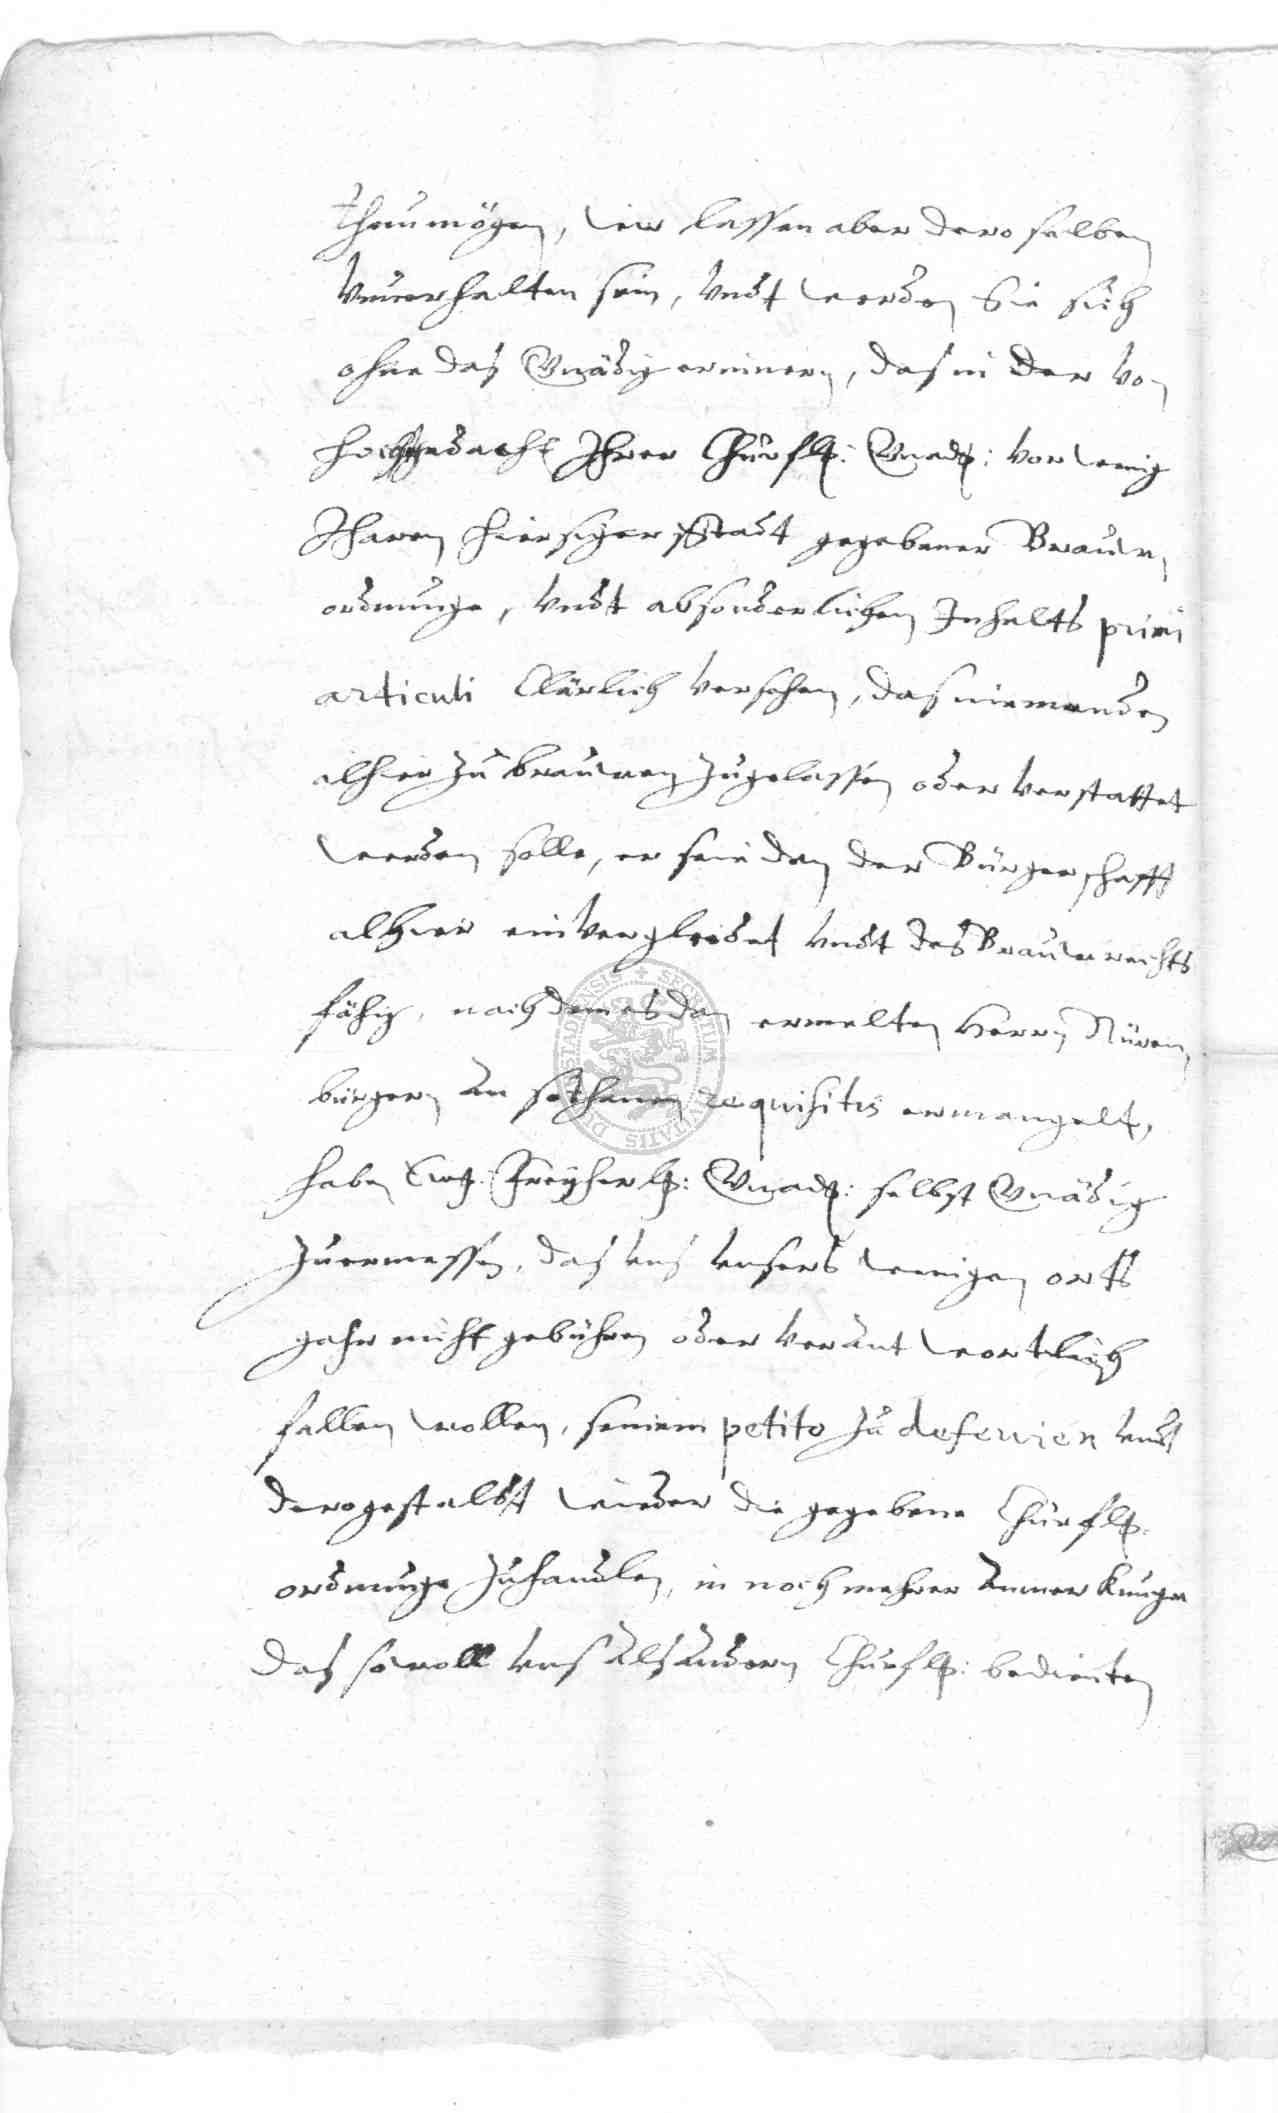 thun mögen, wir lassen aber deroselben
vnuerhalten sein, vndt werden Sie sich
ohne das Gnädig erinnern, das in der von
hochgedacht Ihrer Churfl: Gnad: vor wenig
Iharen hiersiger Stadt gegebener Brauw,
ordnunge, vndt absonderlichen Inhalts primi
articuli Clärlich versehen, das niemanden
alhier zu brauwen zugelassen oder verstattet
werden solle, er seie dan der Bürgerschafft
alhier einvergleidet vndt des Brauwrechts
fähig, nach dem es dan ermelten Herrn Nüren,
bürgern an sothanen requisitis ermangelt,
haben Ewg: Freyherl: Gnad: selbst Gnädig
zuermessen, das vns vnsers wenigen orts
gahr nicht gebühren oder verantwortlich
fallen wollen, seinem petito zu deferiren vndt
derogestaldt wieder die gegebene Churfl:
ordnunge zuhandlen, in noch mehrer Anmerkunge
das sowoll vns als andern Churfl: bedienten
DI STADENSIS SECRETUM CIVITATIS